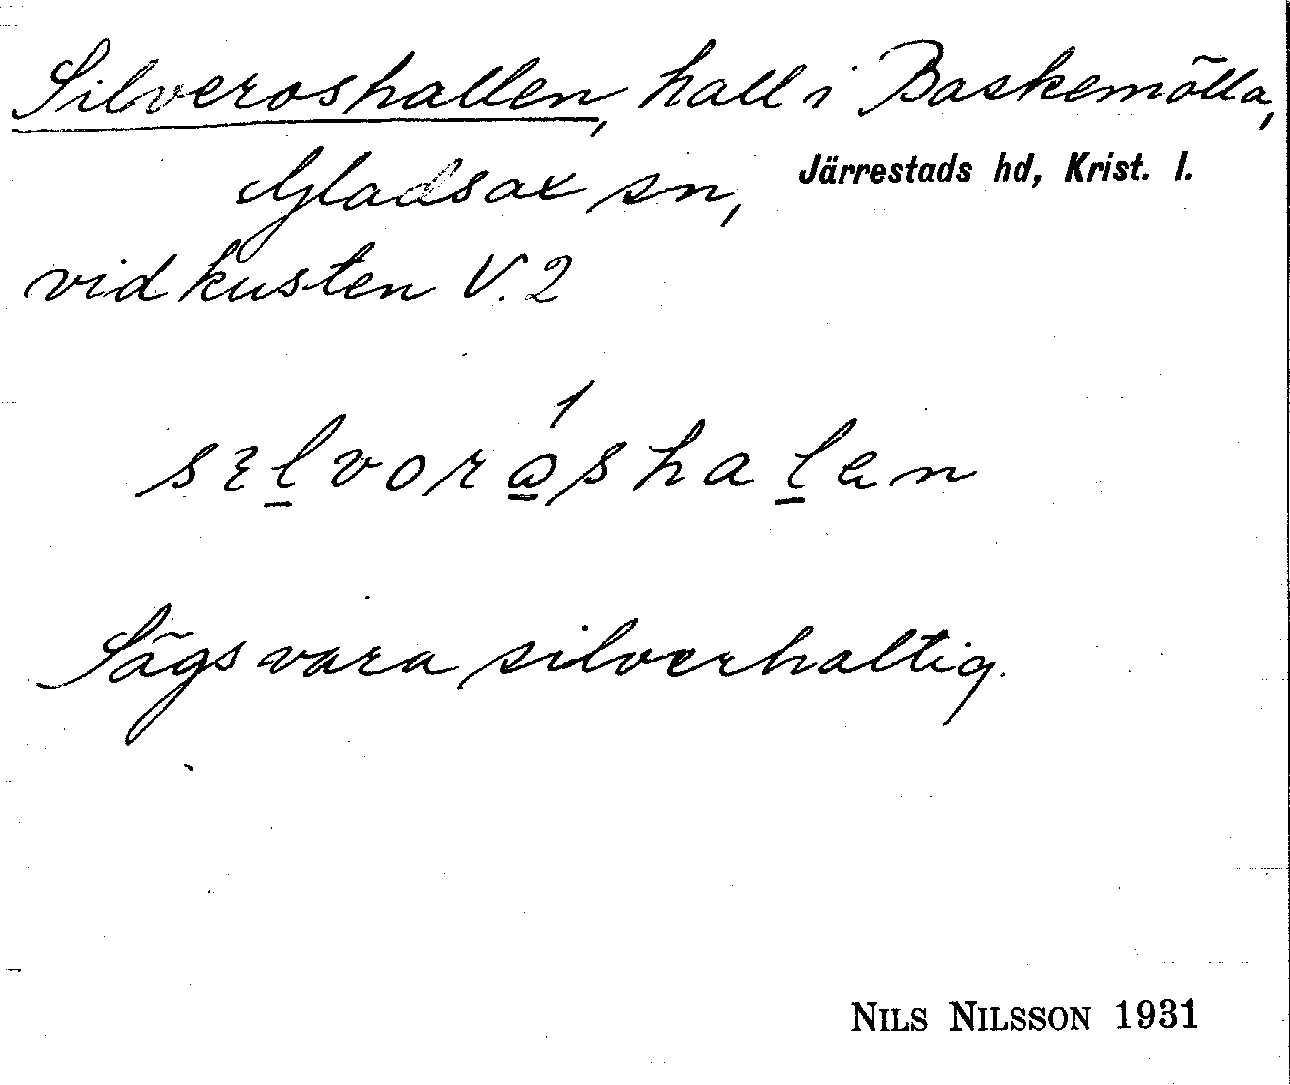 Silveroshallen, hall i Baskemölla,
Gladsax sn, Järrestads hd, Krist. l.
vid kusten V. 2
Sägs vara silverhaltig.
NILS NILSSON 1931